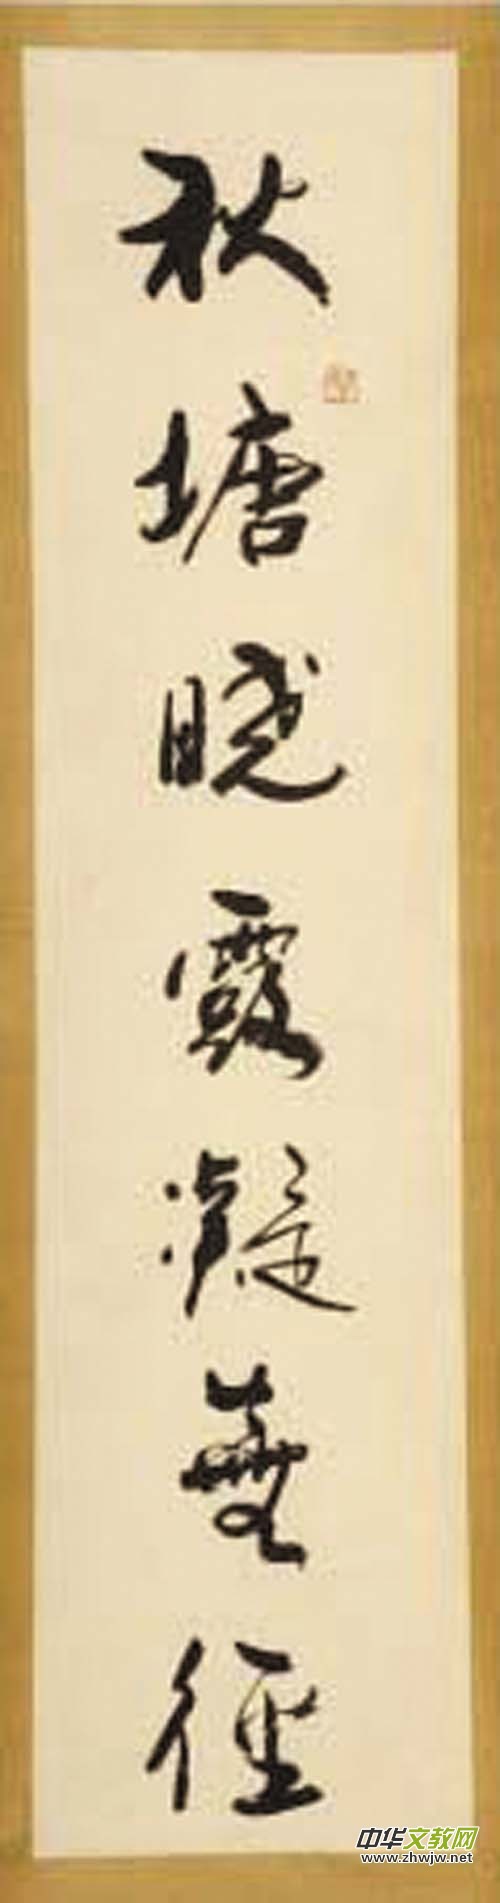 秋塘曉露凝徑
中华文教网
www.zhwjw.net